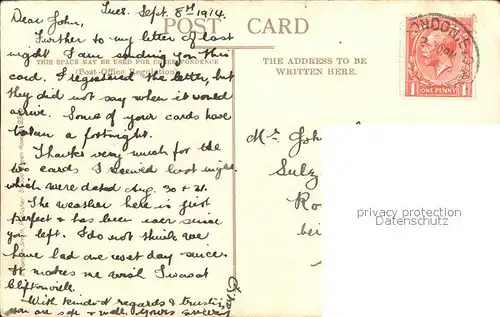 Tues. Sept. 8th 1914.
POST CARD
Dear John,
Further to my letter of last
night I am sending you this
THIS SPACE MAY BE USED FOR CORRESPONDENCE
card. I registered the letter, but
(Post Office Regulation)
they did not say when it would
arrive. Some of your cards have
taken a fortnight.
Thanks very much for the
two cards I received last night
which were dated Aug. 30 & 31.
The weather here is just
perfect & has been ever since
you left. I do not think we
have had one wet day since.
It makes me wish I was at
Cliftonville.
With kindest regards & trusting
you are safe & well. Yours sincerely
THE ADDRESS TO BE
WRITTEN HERE.
LONDON
1 ONE PENNY 1
Mr John
Sulz
Ro
bei
property of akpool gmbh
www.akpool.de